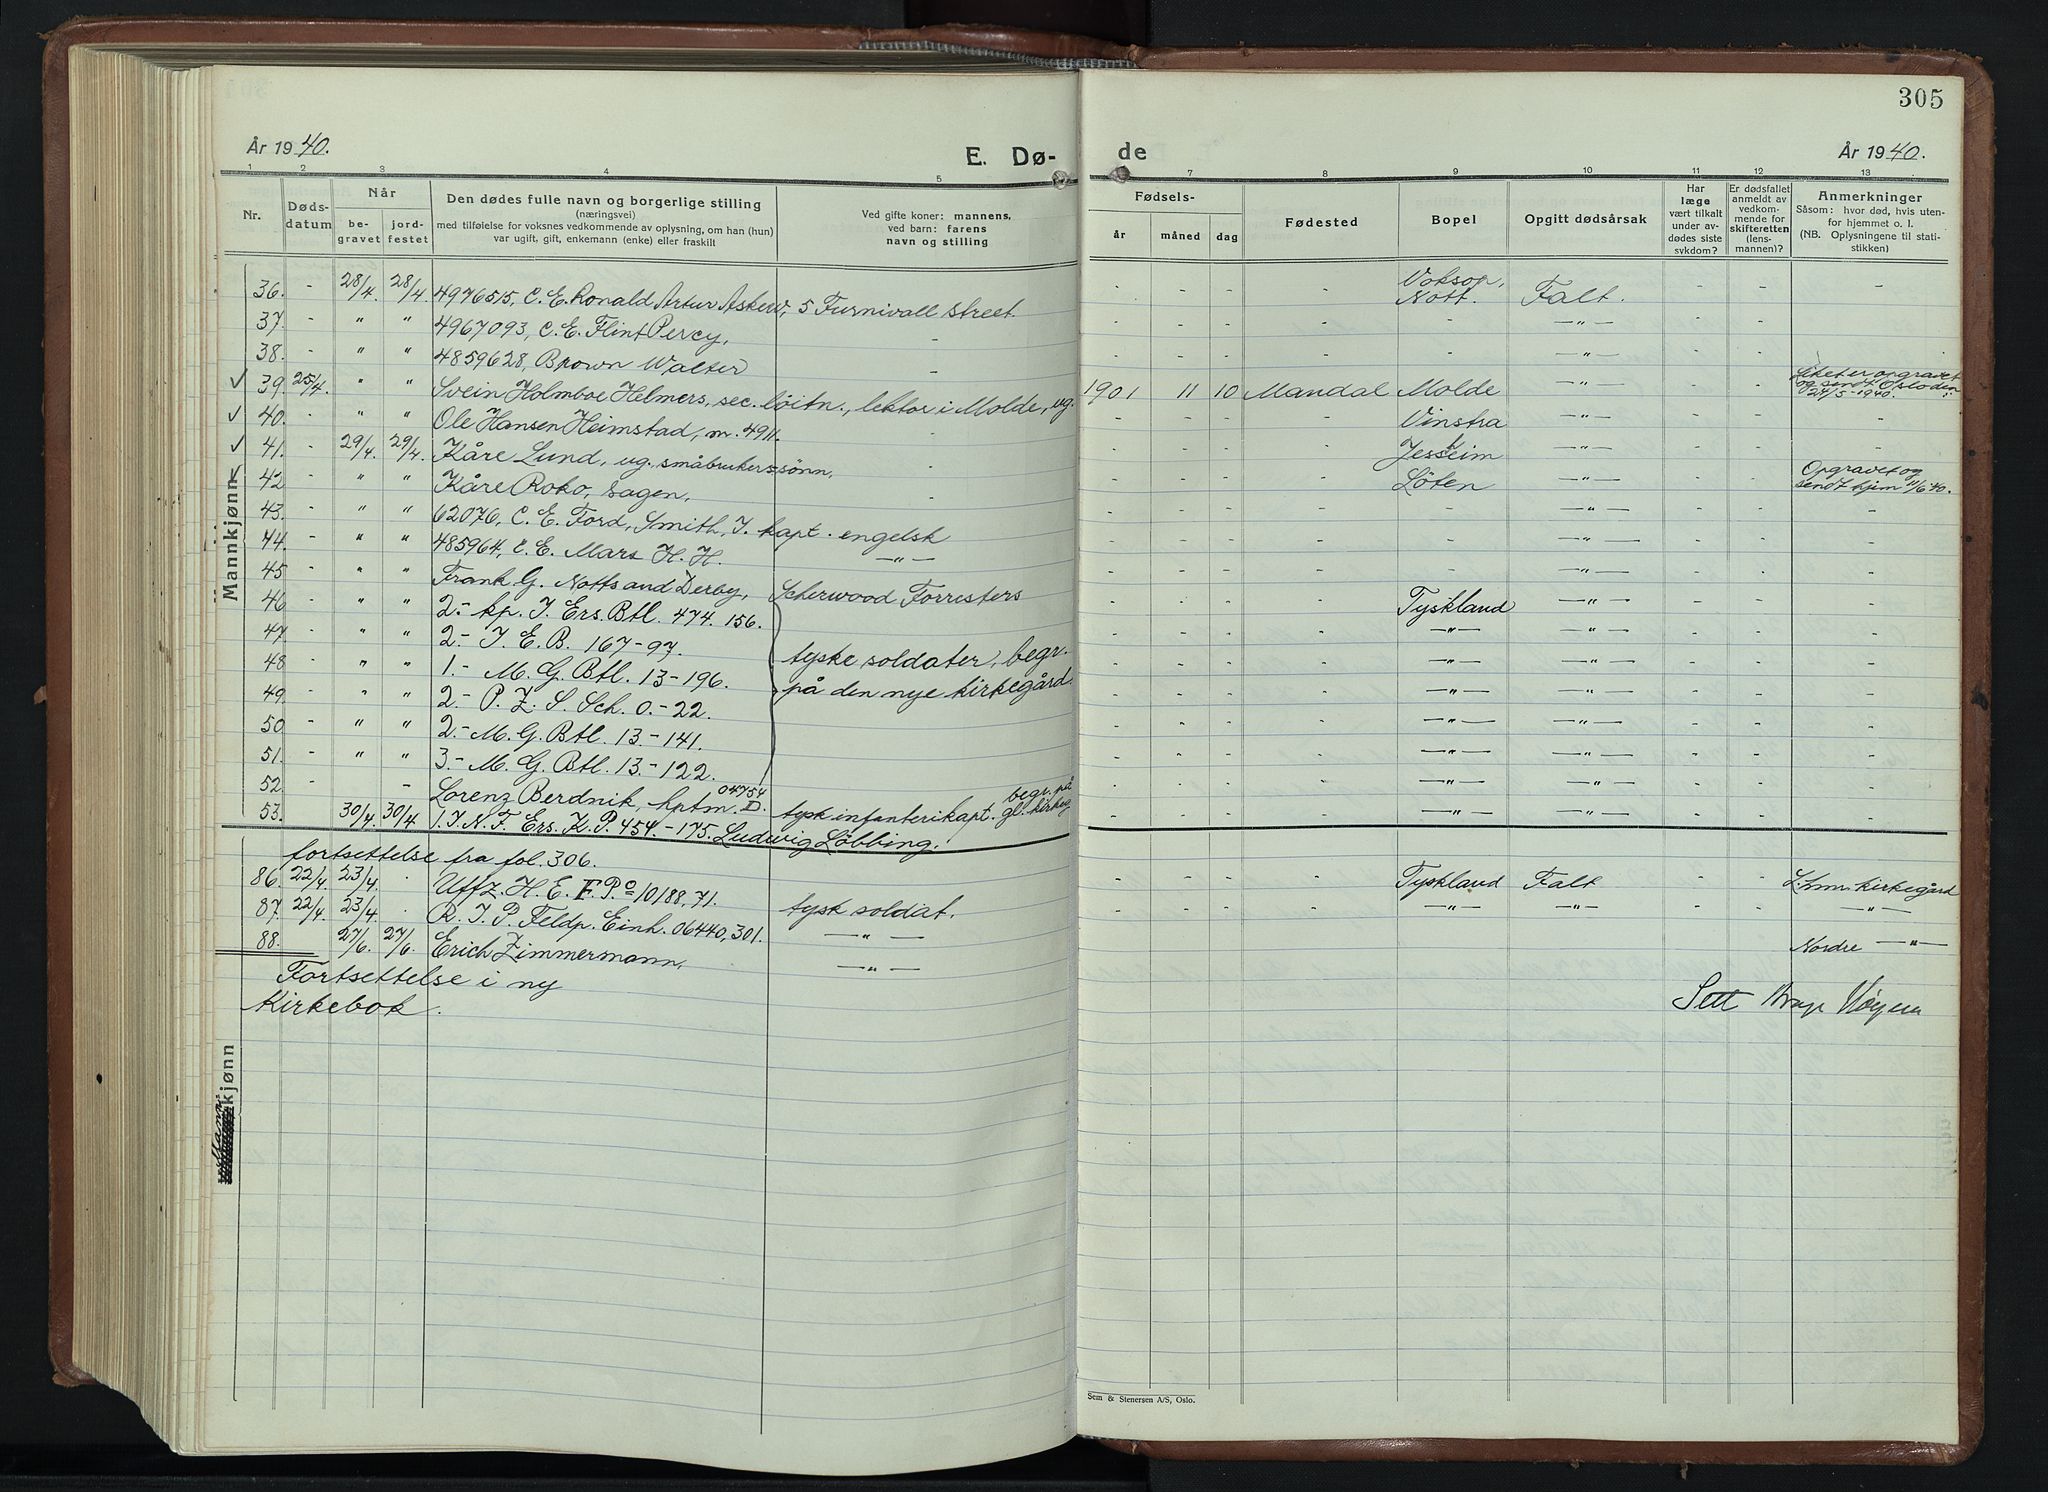 305
År 1940.
E. Dø-
de
År 1940.
1 2 3 4 5 7 8 9 10 11 12 13
Nr.
Døds-
datum
Når
be-
gravet
jord-
festet
Den dødes fulle navn og borgerlige stilling
(næringsvei)
med tilføielse for voksnes vedkommende av oplysning, om han (hun)
var ugift, gift, enkemann (enke) eller fraskilt
Ved gifte koner: mannens,
ved barn: farens
navn og stilling
Fødsels-
år
måned
dag
Fødested
Bopel
Opgitt dødsårsak
Har
læge
vært tilkalt
under av-
dødes siste
sykdom?
Er dødsfallet
anmeldt av
vedkom-
mende for
skifteretten
(lens-
mannen)?
Anmerkninger
Såsom: hvor død, hvis uten-
for hjemmet o. l.
(NB. Oplysningene til stati-
stikken)
Mannkjønn
36. - 28/4. 28/4 4976515, C. E. Ronald Artur Askew, 5 Furnivall street - - - - Voksop, Nott. Falt. - - -
37. - " " 4967093, C. E. Flint Percy, - - - - - - -"- - - -
38. - " " 4859628, Brown Walter - - - - - - -"- - - -
✓ 39. 25/4. " " Svein Holmboe Helmers, sec. löitn., lektor i Molde, ug. 1901 11 10 Mandal Molde -"- - - opgravet og sendt Oslo den 24/5-1940.
✓ 40. - " " Ole Hansen Heimstad, m. 4911. - - - - - Vinstra -"- - - -
✓ 41. - 29/4. 29/4 Kåre Lund, ug. småbrukerssønn, - - - - - Jessheim -"- - - -
42 - " " Kåre Roko, Sagen, - - - - - Löten -"- - - Opgravet og sendt hjem 11/6 40.
43. - " " 62076, C. E. Ford, Smith, J. kapt. engelsk - - - - - -"- - - -
44. - " " 485964, C. E. Mars H. H. -"- - - - - - -"- - - -
45 - " " Frank G. Notts and Derby, Scherwood Forresters - - - - - -"- - - -
46 - " " 2.- kp. I. Ers. Btl. 474. 156. - - - - Tyskland -"- - - -
47. - " " 2.- I. E. B. 167-97. - - - - -"- -"- - - -
48 - " " 1.- M. G. Btl. 13-196. tyske soldater, begr. - - - - -"- -"- - - -
49. - " " 2.- P. Z. S. Sch. 0.-22. på den nye kirkegård. - - - - -"- -"- - - -
50 - " " 2.- M. G. Btl. 13.-141. - - - - -"- -"- - - -
51. - " " 3.- M. G. Btl. 13.-122. - - - - -"- -"- - - -
52. - - Lorenz Berdnik, hptm. 04754 D. tysk infanterikapt. begr. på gl. kirkeg. - - - - -"- -"- - - -
53. 30/4. 30/4 1. I. N. F. Ers. K. P. 454.-175. Ludwig Löbbing. - - - - -"- -"- - - -
fortsettelse fra fol. 306.
86. 22/4. 23/4. . Uffz. H. E. F. Pº 10188, 71. tysk soldat. - - - - Tyskland Falt - - kirkegård
87. 22/4. 23/4 . R. I. P. Feldp. Einh. 06440, 301. -"- - - - - -"- -"- - - -"-
88. 27/6. 27/6. Erich Zimmermann, -"- Nordre -"-
Fortsettelse i ny
Kirkebok.
Sett
Mann
kjønn
Sem & Stenersen A/S, Oslo.